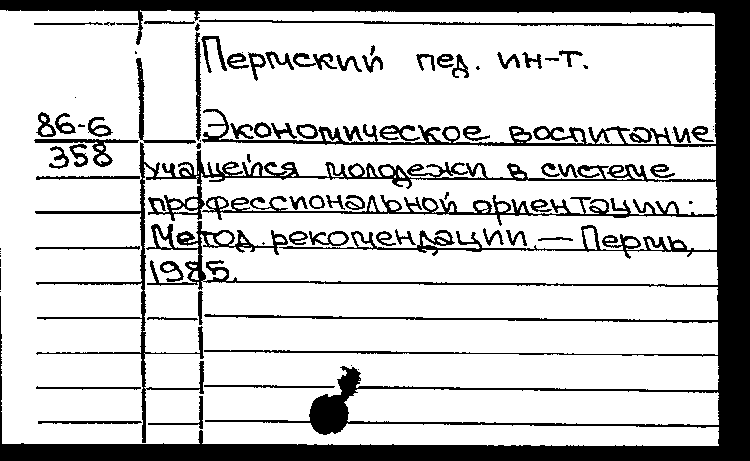 Пермский пед. ин-т.
86-6 Экономическое воспитание
358 учащейся молодежи в системе
профессиональной ориентации:
Метод. рекомендации. — Пермь,
1985.